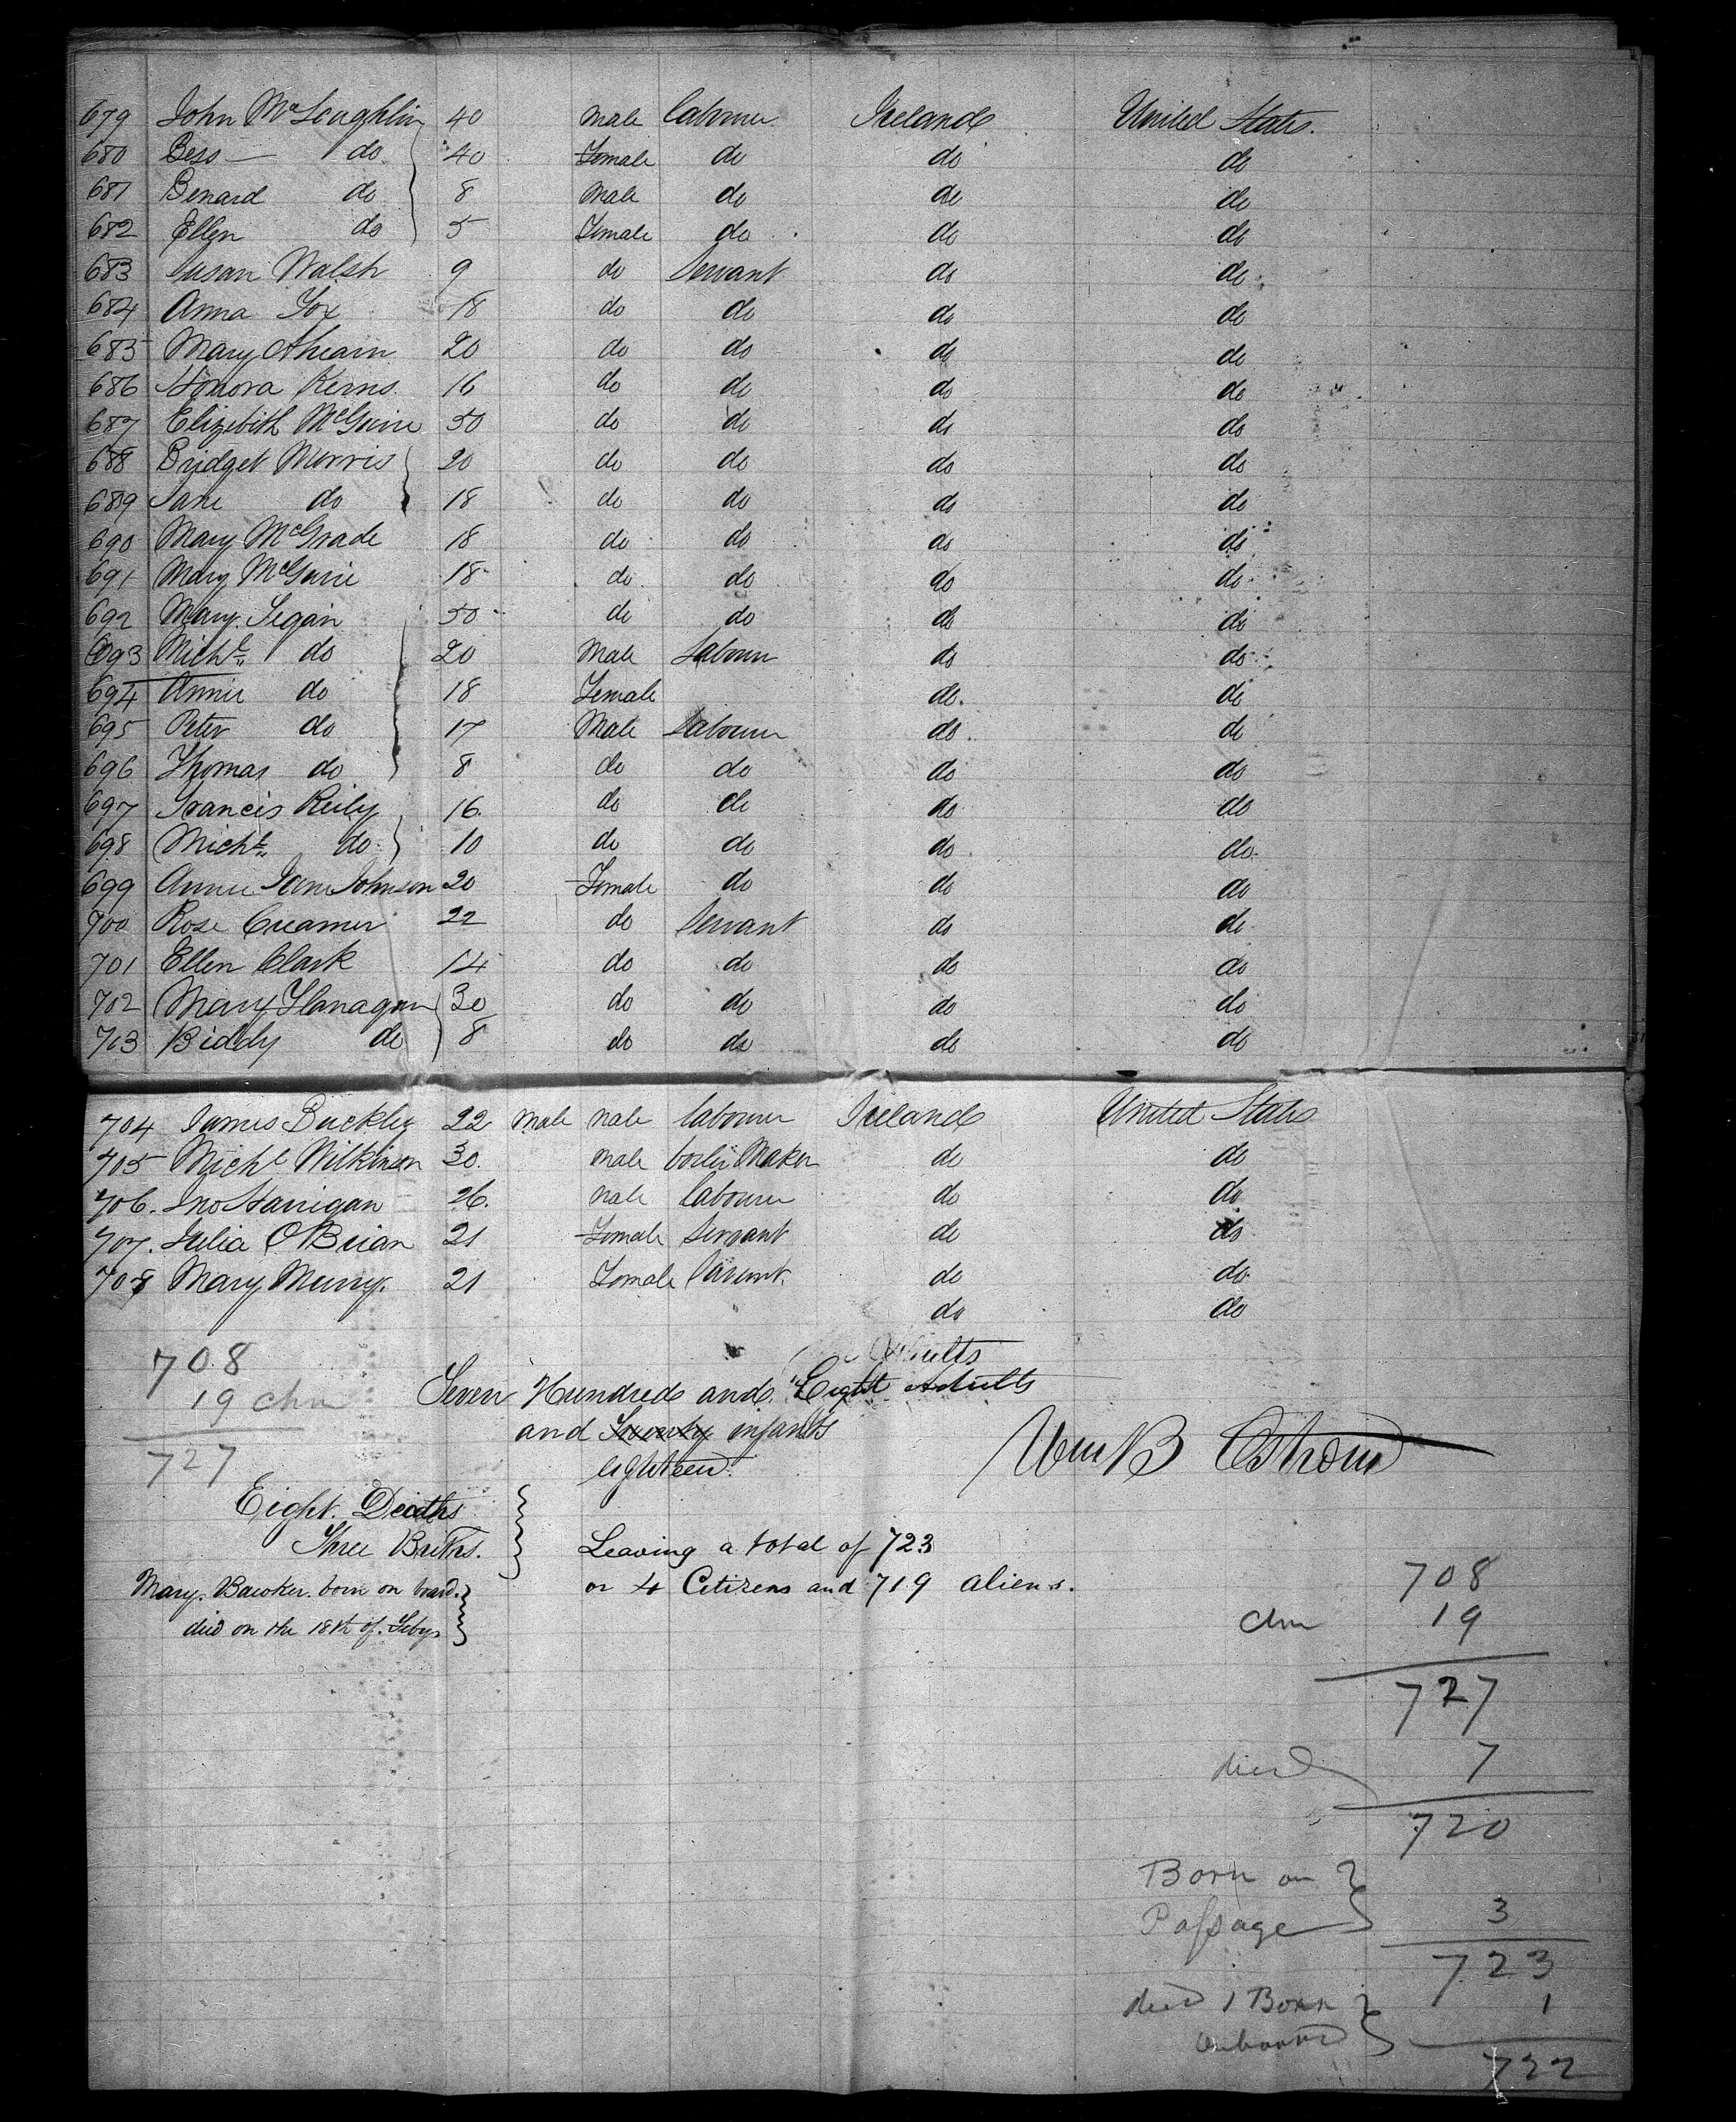 679 John McLoughlin 40 Male labourer Ireland United States.
680 Bess — do 40 Female do do do
681 Benard do 8 Male do do do
682 Ellen do 5 Female do do do
683 Susan Walsh 9 do Servant do do
684 Anna Fox 18 do do do do
685 Mary Ahearn 20 do do do do
686 Honora Kerns. 16 do do do do
687 Elizibith McGuire 50 do do do do
688 Bridget Morris 20 do do do do
689 Jane do 18 do do do do
690 Mary McGrade 18 do do do do
691 Mary McGuire 18 do do do do
692 Mary Segan 50 do do do do
693 Michl do 20 Male Labourer do do
694 Annie do 18 Female do do
695 Peter do 17 Male Labourer do do
696 Thomas do 8 do do do do
697 Francis Reily 16 do do do do
698 Michl do 10 do do do do
699 Annie Jane Johnson 20 Female do do do
700 Rose Creamer 22 do Servant do do
701 Ellen Clark 14 do do do do
702 Mary Flanagan 30 do do do do
713 Biddy do 8 do do do do
704 James Buckley 22 male male labourer Ireland United States
705 Michl Wilkinson 30. male boiler Maker do do
706. Jno Harrigan 26. male labourer do do
707. Julia O'Brian 21 Female Servant do do
708 Mary Murry. 21 Female Servant. do do
do do
Adults
708
19 chn
727
Seven Hundred and Eight Adults
and Twenty infants
eighteen.
Wm B Ostrom
Eight Deaths
Three Births.
Leaving a total of 723
or 4 Citizens and 719 aliens.
Mary. Bawker. born on board.
died on the 18th of. Feby
708
chn 19
727
died 7
720
Born on
Passage 3
723
died 1 Born
onboard 1
722